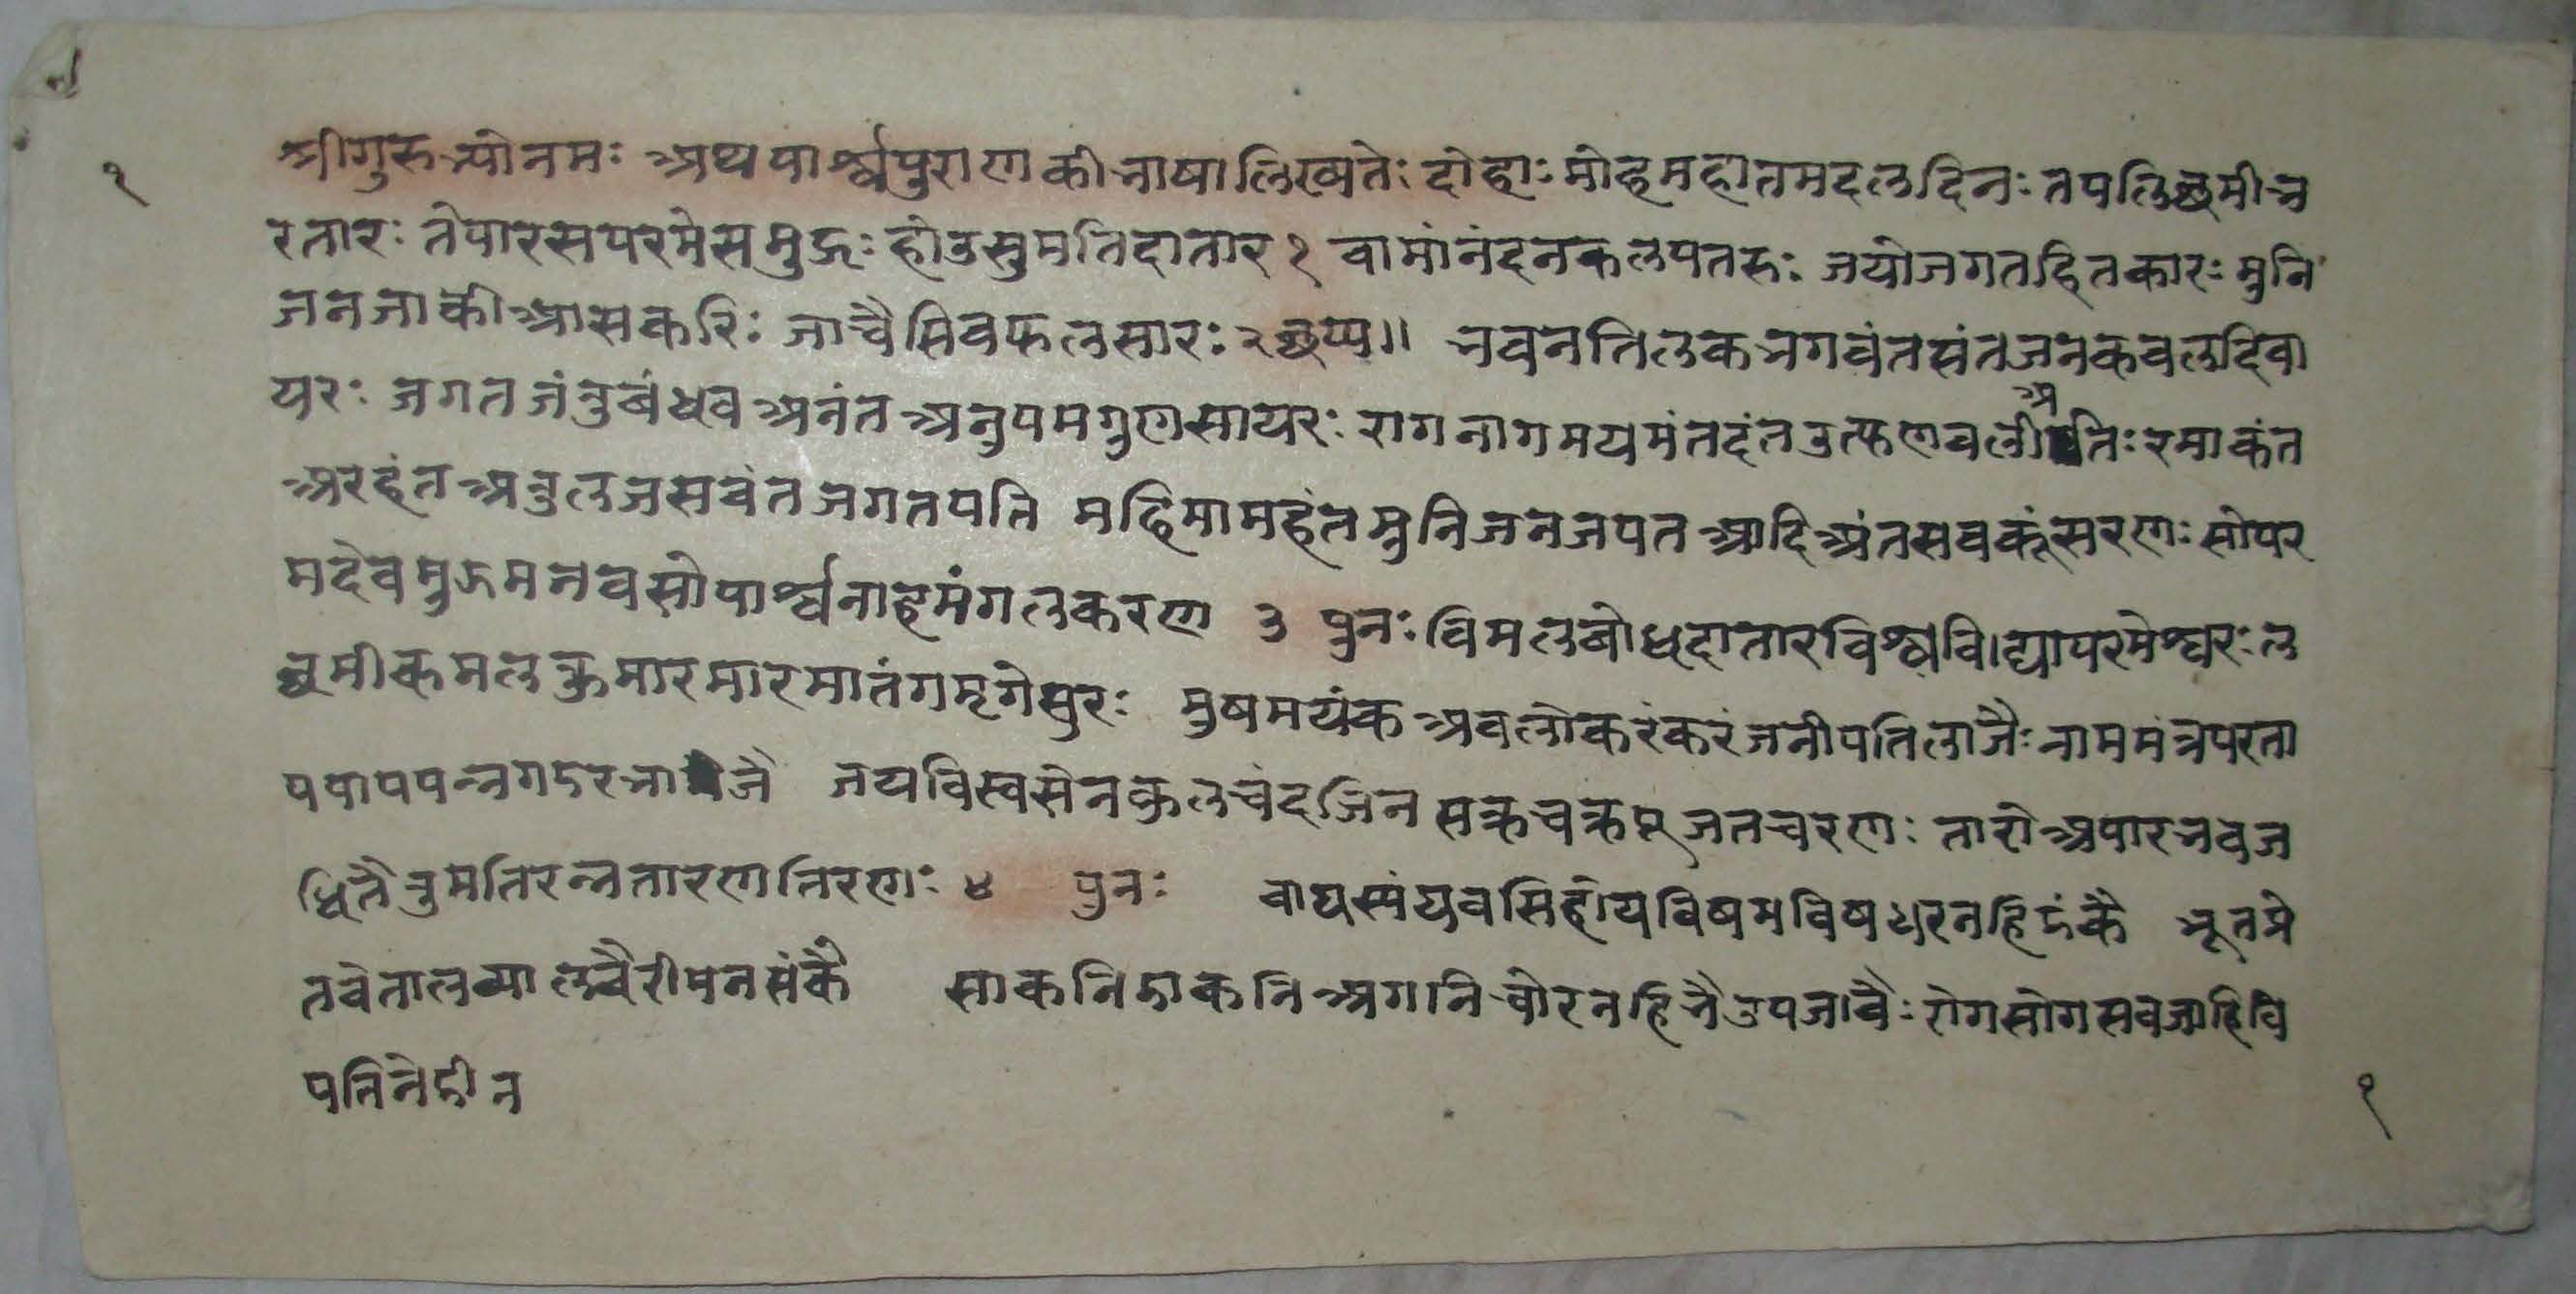 १
श्रीगुरुभ्योनमः अथपार्श्वपुराणकीभाषालिख्यतेः दोहाः मोहमहातमदलदिनः तपलिछमीभ
रतारः तेपारसपरमेसमुझः होउसुमतिदातार १ वामांनंदनकलपतरुः जयोजगतहितकारः मुनि
जनजाकीआसकरिः जाचैसिवफलसारः २ छप्प॥ भवनतिलकभगवंतसंतजनकवलदिवा
यरः जगतजंतुबंधवअनंतअनुपमगुणसायरः रागनागमयमंतदंतउत्फणवलीअतिः रमाकंत
अरहंतअतुलजसवंतजगतपति महिमामहंतमुनिजनजपतआदिअंतसवकूंसरणः सोपर
मदेवमुझमनवसोपार्श्वनाहमंगलकरण ३ पुनः विमलबोधदातारविश्वविद्यापरमेश्वरः ल
छमीकमलकुमारमारमातंगमृगेसुरः मुषमयंकअवलोकरंकरंजनीपतिलाजैः नाममंत्रपरता
पपापपन्नगडरभाजै जयविस्वसेनकुलचंदजिनसक्रचक्रपूजतचरणः तारोअपारभवज
धितैतुमतिरन्नतारणतिरणः ४ पुनः वाघस्यंघवसिहोयविषमविषधरनहिडंकै भूतप्रे
तवेतालव्यालवैरीमनसंकै साकनिडाकनिअगनिचोरनहिभैउपजावैः रोगसोगसवजाहिवि
पतिनेडीन
१